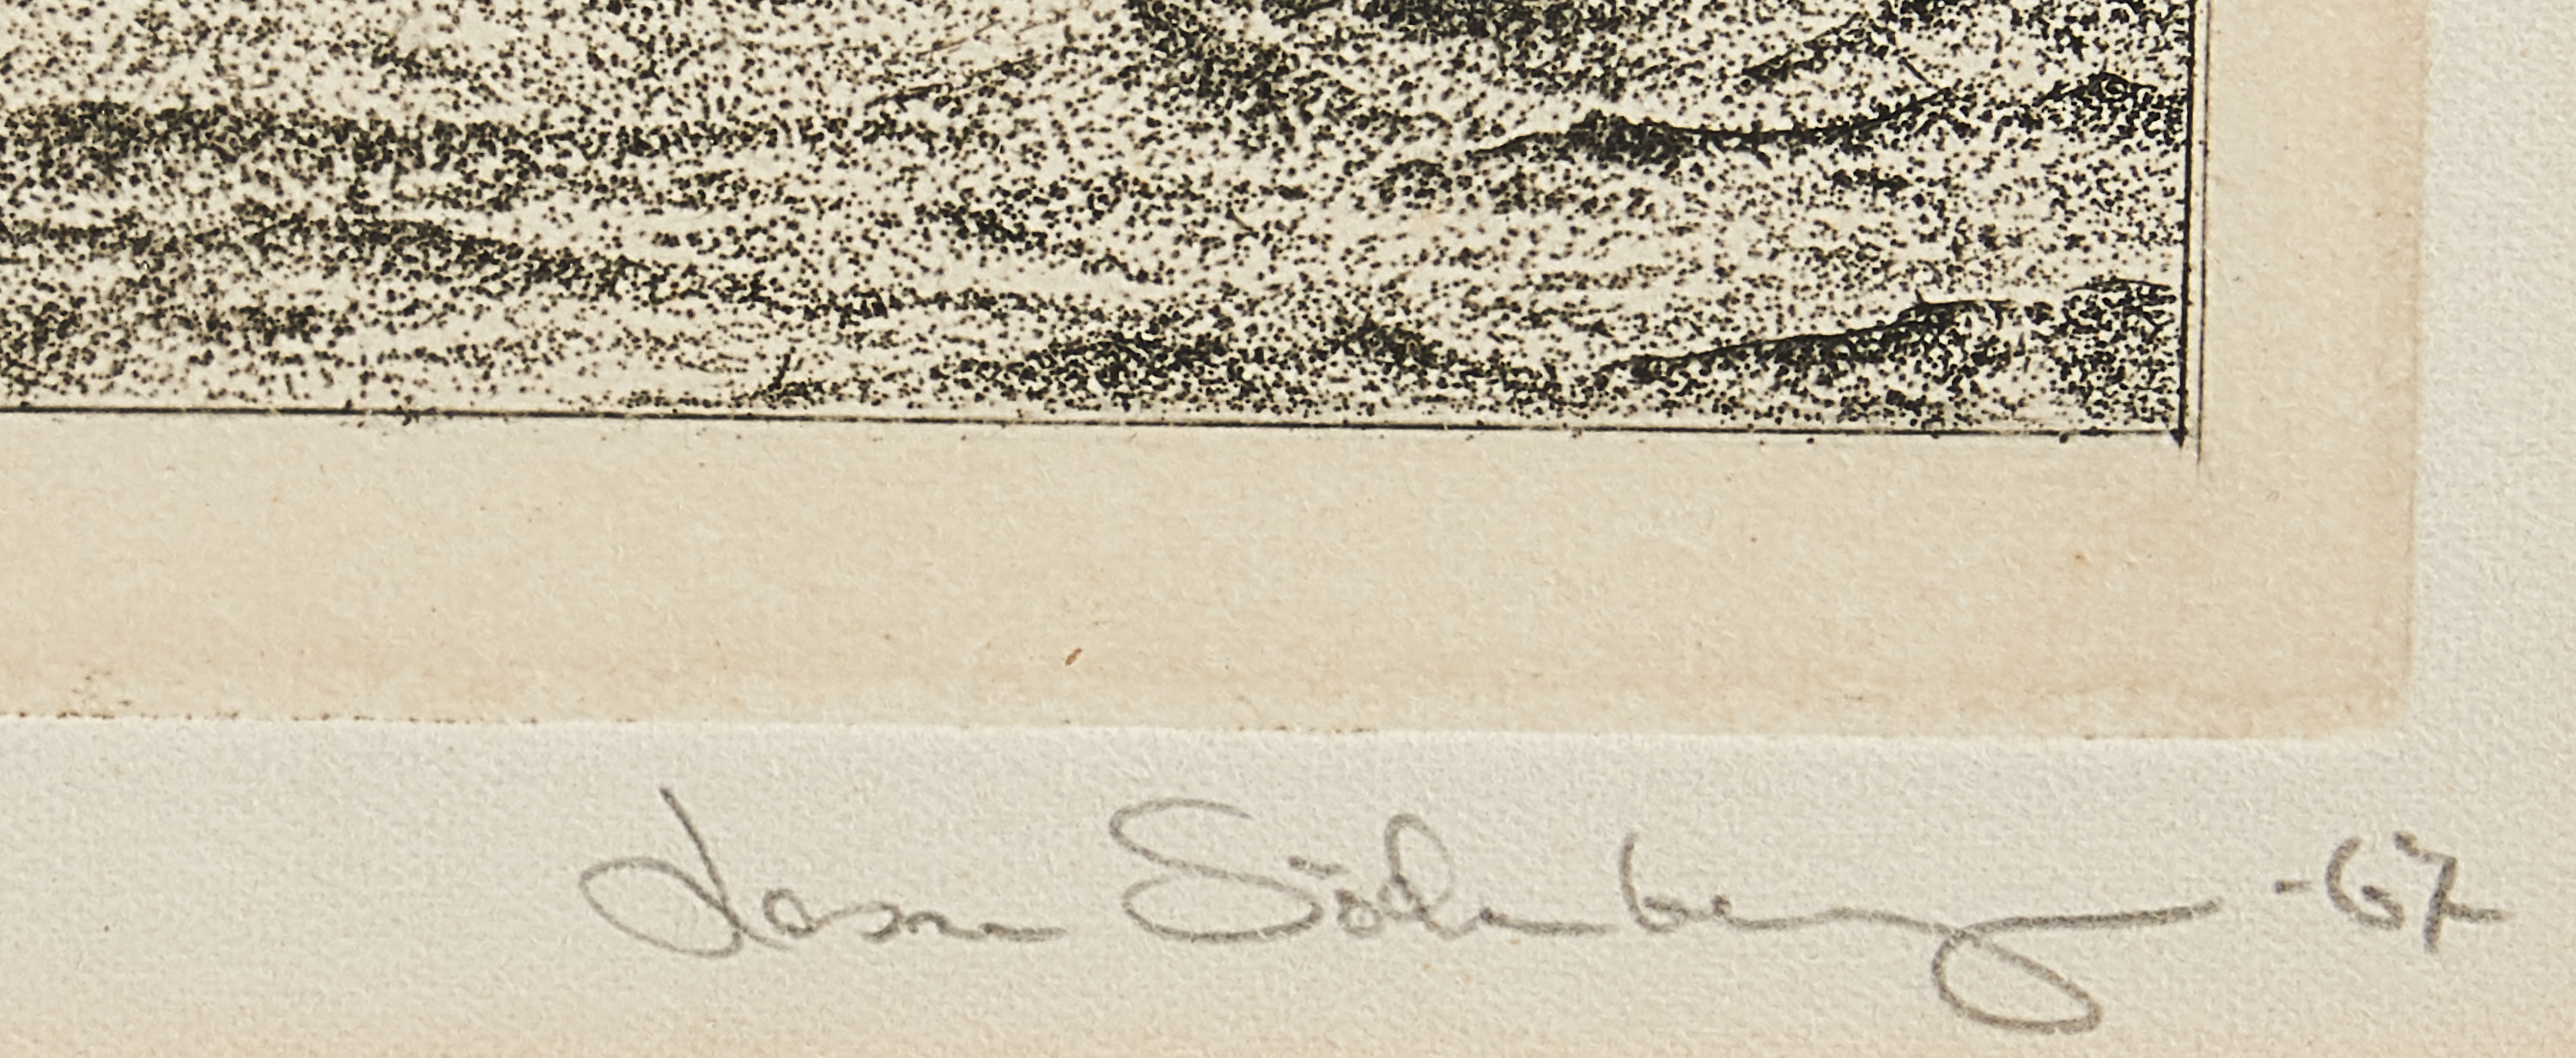 Lasse Söderberg -67